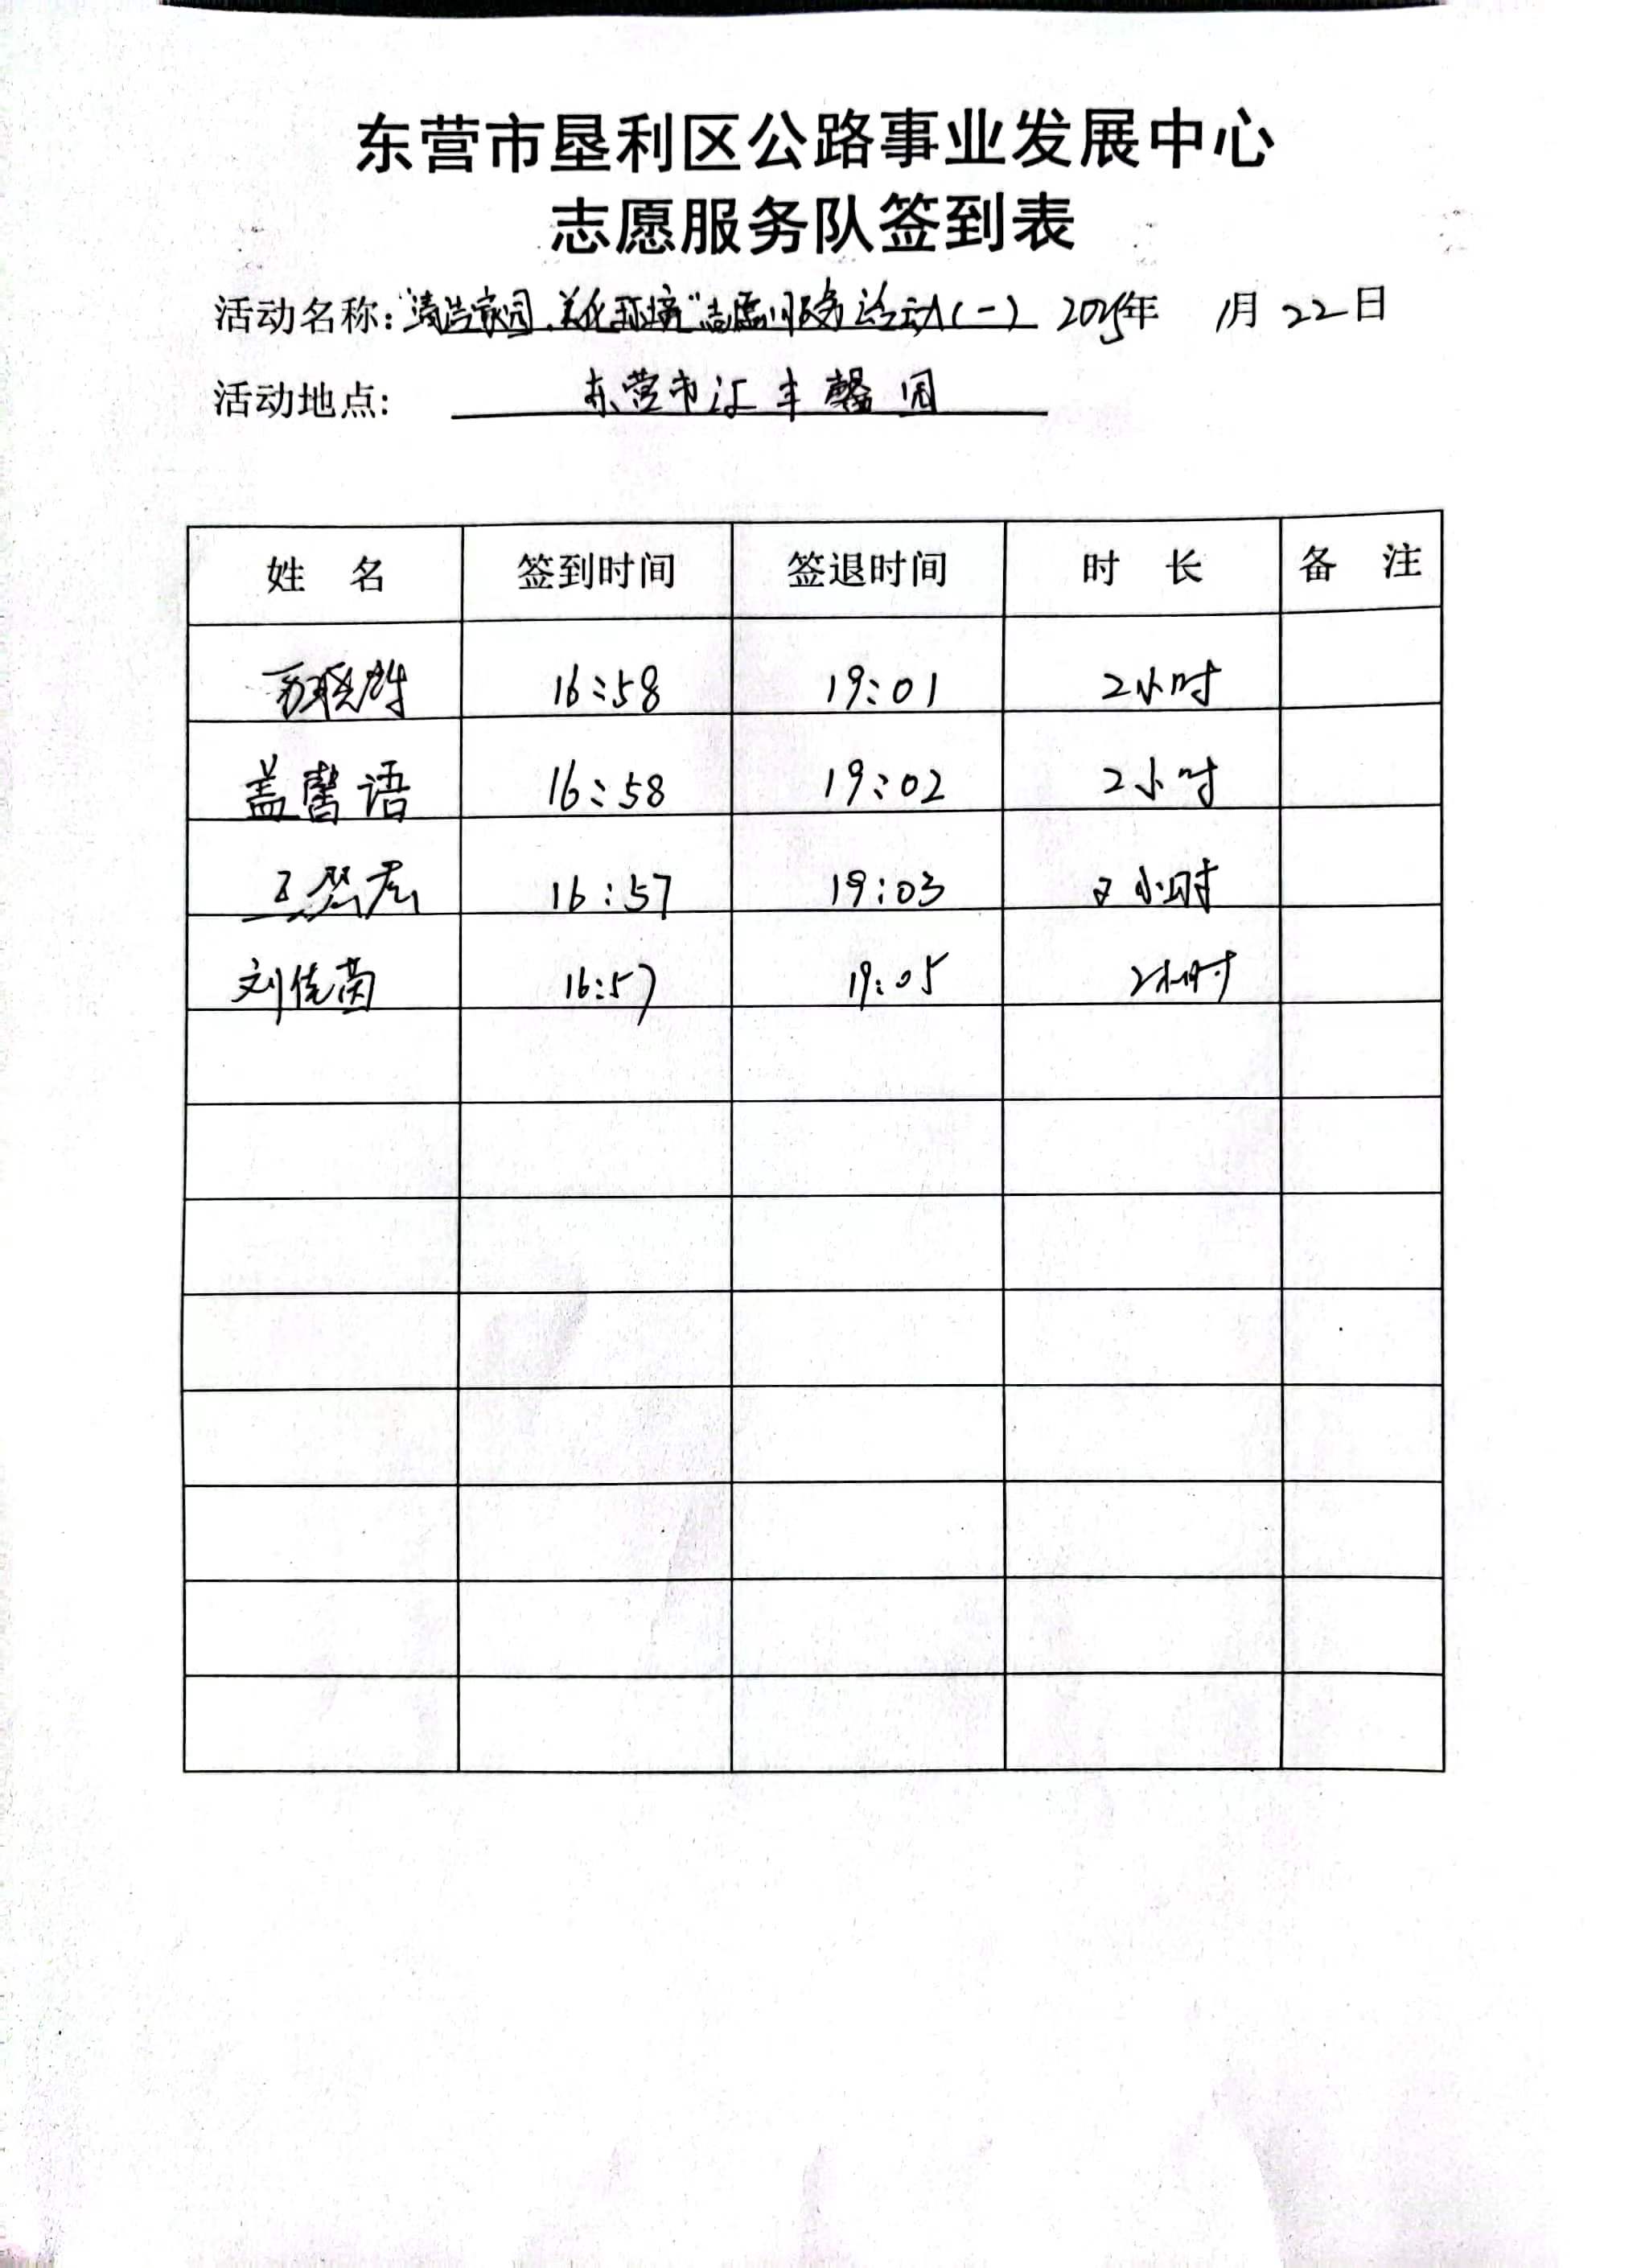 东营市垦利区公路事业发展中心
志愿服务队签到表
活动名称:"清洁家园,美化环境"志愿服务活动(一) 2025年 1月22日
活动地点: 东营市汇丰馨园
姓 名 签到时间 签退时间 时 长 备 注
16:58 19:01 2小时
盖馨语 16:58 19:02 2小时
王 16:57 19:03 2小时
刘佳茵 16:57 19:05 2小时